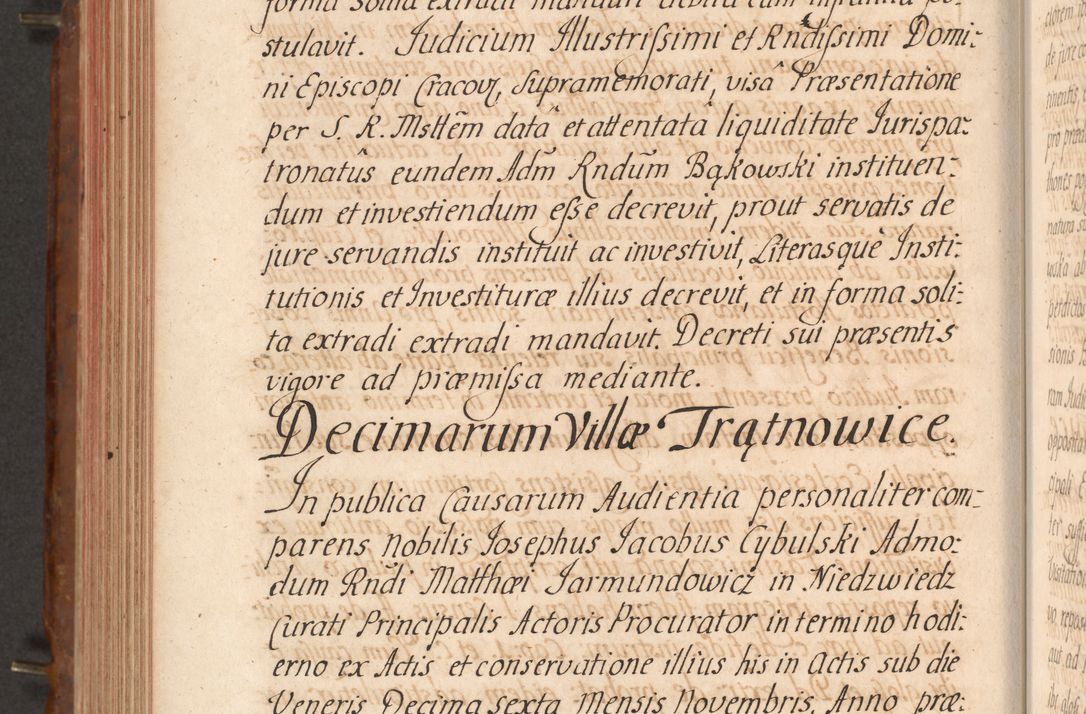 forma solita extradi mandari debita cum instantia po-
stulavit. Judicium Illustrissimi et Rndissimi Domi:
ni Episcopi Cracov, supramemorati, visâ Præsentatione
per S. R. Msttem datâ et attentatâ liquiditate Jurispa:
tronatûs eundem Adm Rndum Bąkowski instituen:
dum et investiendum esse decrevit, prout servatis de
jure servandis instituit ac investivit, Literasquè Insti:
tutionis et Investituræ illius decrevit, et in forma soli:
ta extradi extradi mandavit. Decreti sui præsentis
vigore ad præmissa mediante.
Decimarum Villæ Trątnowice.
In publica Causarum Audientia personaliter com-
parens Nobilis Josephus Jacobus Cybulski Admo:
dum Rndi Matthæi Jarmundowicz in Niedzwiedz
Curati Principalis Actoris Procurator in termino hodi:
erno ex Actis et conservatione illius his in Actis sub die
Veneris Decima sexta Mensis Novembris, Anno præ: